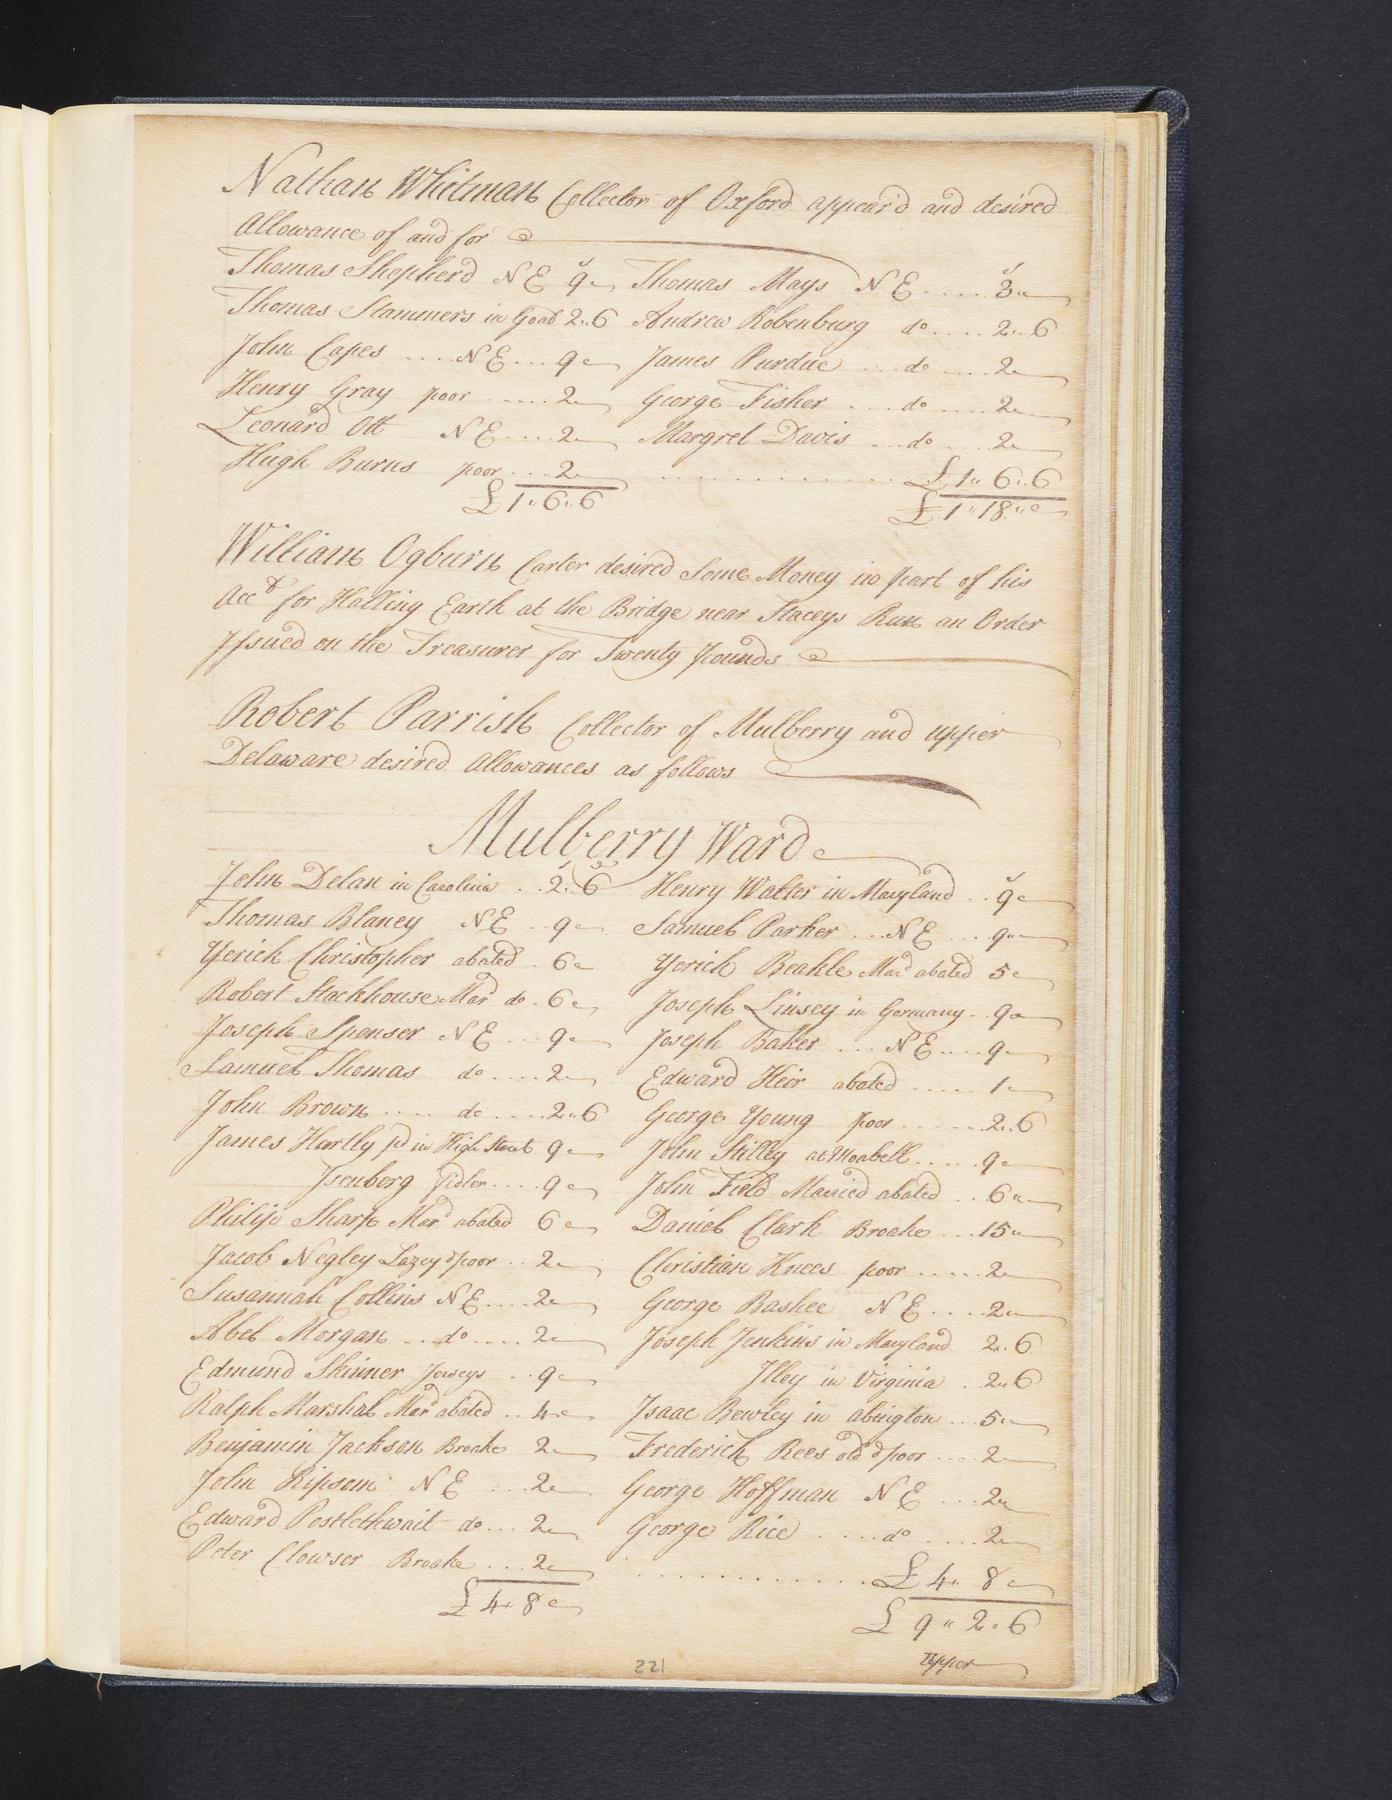 Nathan Whitman Collector of Oxford appear'd and desired
Allowance of and for
Thomas Shepherd N E 9 Thomas Mays N E .... 3
Thomas Stammers in Goal 2..6 Andrew Robenburg do .... 2..6
John Capes .... N E ... 9 James Purdue ... do .... 2
Henry Gray poor ..... 2 George Fisher ... do .... 2
Leonard Ott N E .... 2 Margret Davis ... do ... 2
Hugh Burns poor ... 2 £ 1" 6..6
£ 1"6"6 £ 1"18"
William Ogburn Carter desired Some Money in part of his
Acct for Halling Earth at the Bridge near Staceys Run an Order
Issued on the Treasurer for Twenty pounds
Robert Parrish Collector of Mulberry and upper
Delaware desired Allowances as follows
Mulberry Ward
John Delan in Carolina .. 2..6 Henry Walter in Maryland .. 9
Thomas Blaney N E .. 9 Samuel Parker ... N E ... 9
Yerick Christopher abated . 6 Yerick Beakle Mard abated 5
Robert Stockhouse Mard do . 6 Joseph Linsey in Germany .. 9
Joseph Spenser N E ... 9 Joseph Baker ... N E .... 9
Samuel Thomas do .... 2 Edward Heir abated ..... 1
John Brown .... do .... 2..6 George Young poor ...... 2..6
James Hartly pd in High Street 9 John Stilley at ..... 9
Isenberg fidler .... 9 John Field Married abated .. 6
Philip Sharp Mard abated 6 Daniel Clark Broake ... 15
Jacob Negley Lazey & poor .. 2 Christian Knees poor ..... 2
Susannah Collins N E .... 2 George Bashee N E .... 2
Abel Morgan ... do .... 2 Joseph Jenkins in Maryland 2..6
Edmund Skinner Jerseys .. 9 Illey in Virginia . 2..6
Ralph Marshal Mard abated .. 4 Isaac Bewley in abington ... 5
Benjamin Jackson Broake 2 Frederick Rees old & poor .... 2
John Ripsom N E ... 2 George Hoffman N E ... 2
Edward Postlethwait do ... 2 George Rice .... do .... 2
Peter Clowser Broake ... 2 £ 4" 8
£ 4" 8 £ 9 " 2 " 6
Upper
221